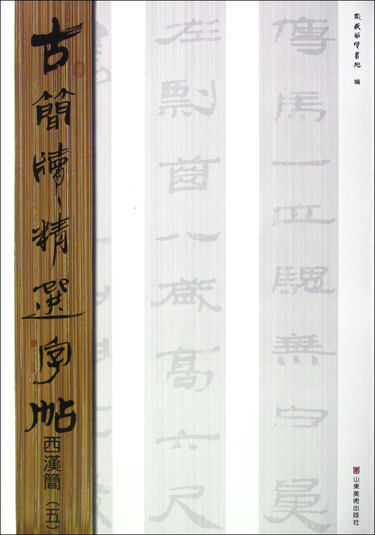 編
傳馬一匹騩乘白鼻
左剽齒八歲高六尺
古簡牘精選字帖
西漢簡（五）
山東美術出版社